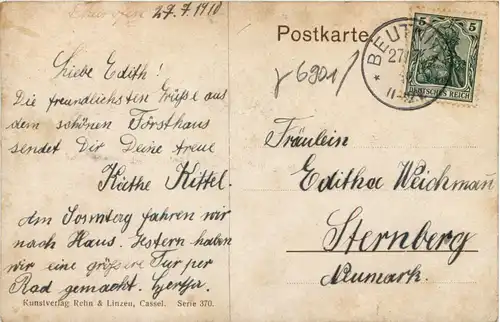 27.7.1910
Liebe Edith!
Die freundlichsten Grüße aus
dem schönen Forsthaus
sendet Dir Deine treue
Käthe Kittel.
Am Sonntag fahren wir
nach Haus. Gestern haben
wir eine größere Tur per
Rad gemacht.
Kunstverlag Rehn & Linzen, Cassel. Serie 370.
Postkarte
6901
5 5
DEUTSCHES REICH
* BEUT
27
Fräulein
Editha Weichmann
Sternberg
Neumark.